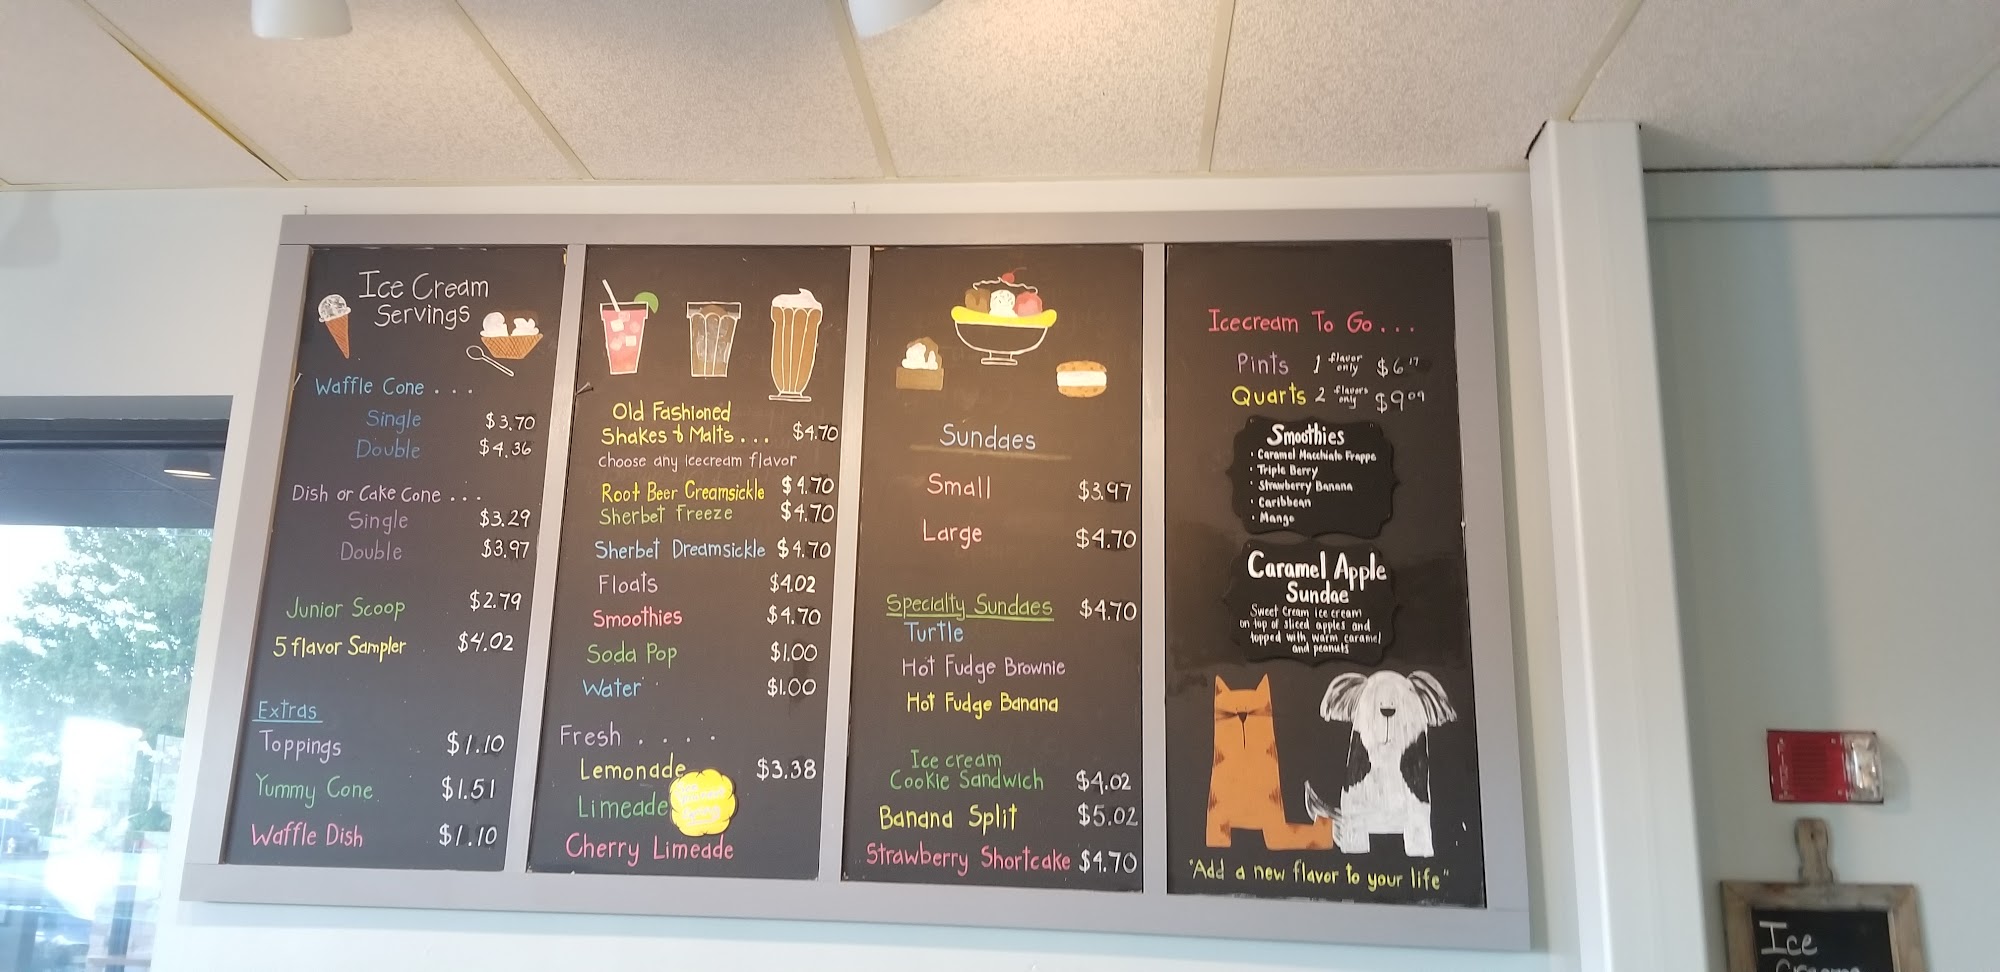 Ice Cream
Servings
Waffle Cone . . .
Single $3.70
Double $4.36
Dish or Cake Cone . . .
Single $3.29
Double $3.97
Junior Scoop $2.79
5 flavor Sampler $4.02
Extras
Toppings $1.10
Yummy Cone $1.51
Waffle Dish $1.10
Old Fashioned
Shakes & Malts . . . $4.70
Choose any icecream flavor
Root Beer Creamsickle $4.70
Sherbet Freeze $4.70
Sherbet Dreamsickle $4.70
Floats $4.02
Smoothies $4.70
Soda Pop $1.00
Water $1.00
Fresh . . . .
Lemonade $3.38
Limeade
Cherry Limeade
Sundaes
Small $3.97
Large $4.70
Specialty Sundaes $4.70
Turtle
Hot Fudge Brownie
Hot Fudge Banana
Ice cream
Cookie Sandwich $4.02
Banana Split $5.02
Strawberry Shortcake $4.70
Icecream To Go . . .
Pints 1 flavor only $6.17
Quarts 2 flavors only $9.09
Smoothies
• Caramel Macchiato Frappe
• Triple Berry
• Strawberry Banana
• Caribbean
• Mango
Caramel Apple
Sundae
Sweet Cream ice cream
on top of sliced apples and
topped with warm caramel
and peanuts
"Add a new flavor to your life"
Ice